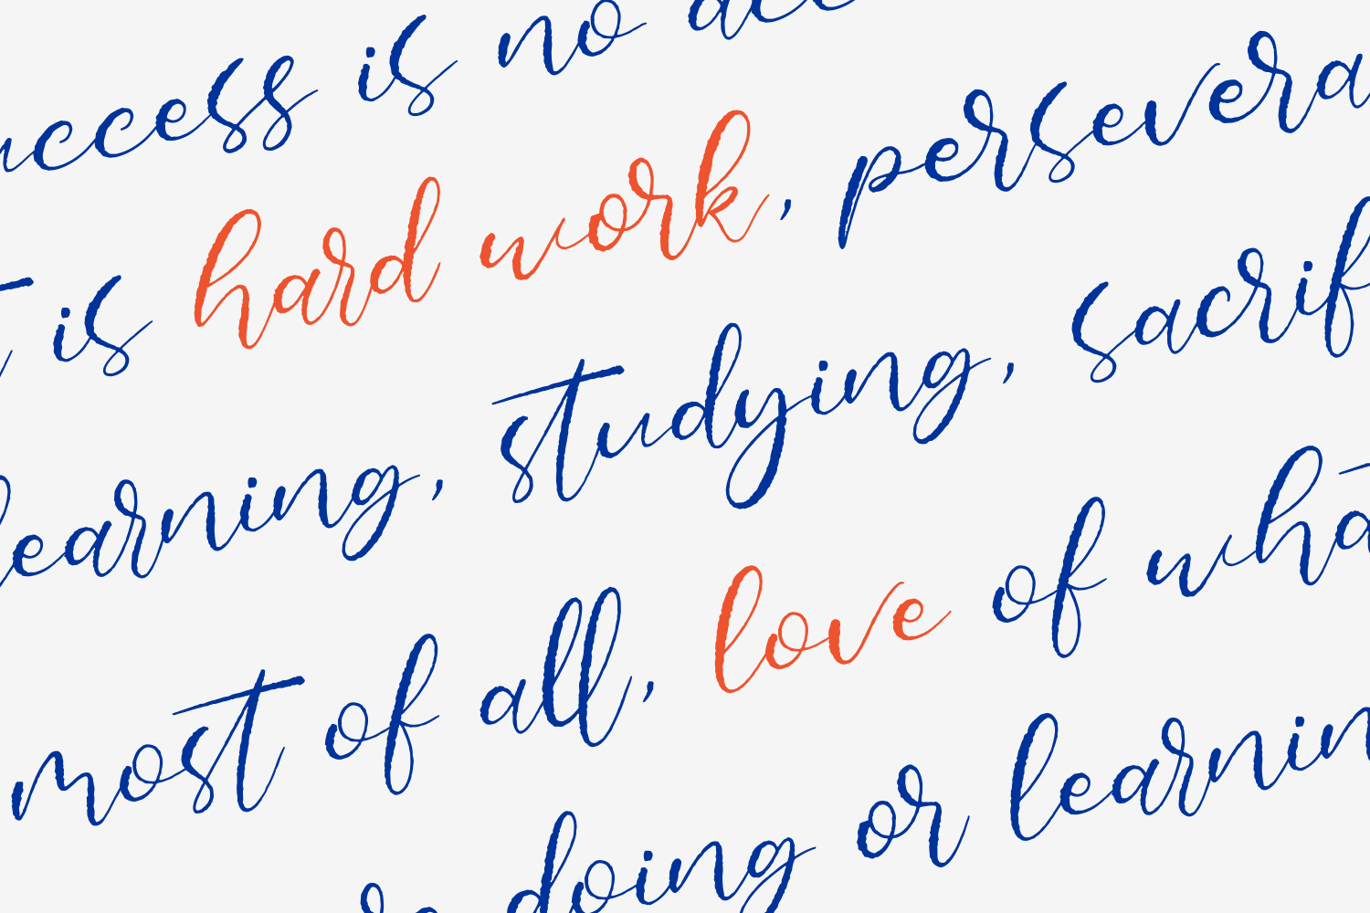 uccess is no acc
t is hard work, persevera
learning, studying, sacrif
most of all, love of what
re doing or learnin